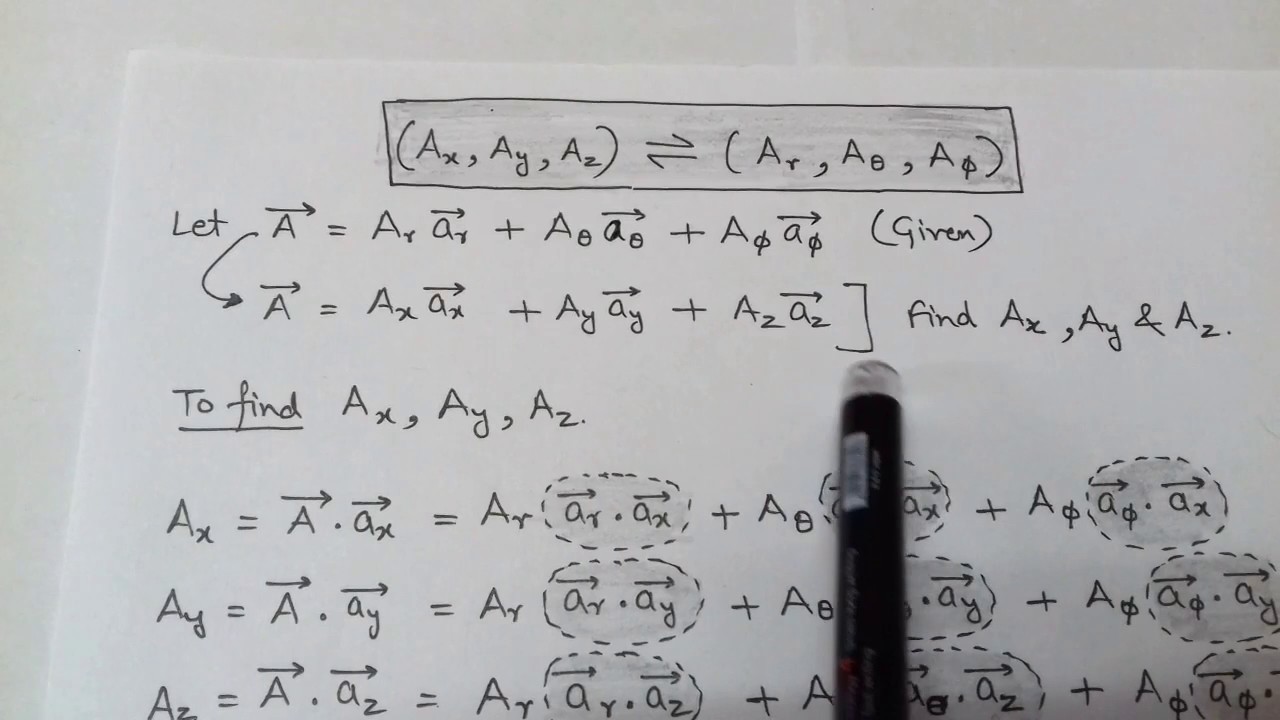 (Aₓ, Aᵧ, A_z) ⇌ (Aᵣ, A_θ, A_ϕ)
Let A⃗ = Aᵣ a⃗ᵣ + A_θ a⃗_θ + A_ϕ a⃗_ϕ (Given)
A⃗ = Aₓ a⃗ₓ + Aᵧ a⃗ᵧ + A_z a⃗_z ] Find Aₓ, Aᵧ & A_z.
To find Aₓ, Aᵧ, A_z.
Aₓ = A⃗ . a⃗ₓ = Aᵣ (a⃗ᵣ . a⃗ₓ) + A_θ ( a⃗ₓ) + A_ϕ (a⃗_ϕ . a⃗ₓ)
Aᵧ = A⃗ . a⃗ᵧ = Aᵣ (a⃗ᵣ . a⃗ᵧ) + A_θ . a⃗ᵧ) + A_ϕ (a⃗_ϕ . a⃗ᵧ
A_z = A⃗ . a⃗_z = Aᵣ (a⃗ᵣ . a⃗_z) + A a⃗_θ . a⃗_z) + A_ϕ (a⃗_ϕ .